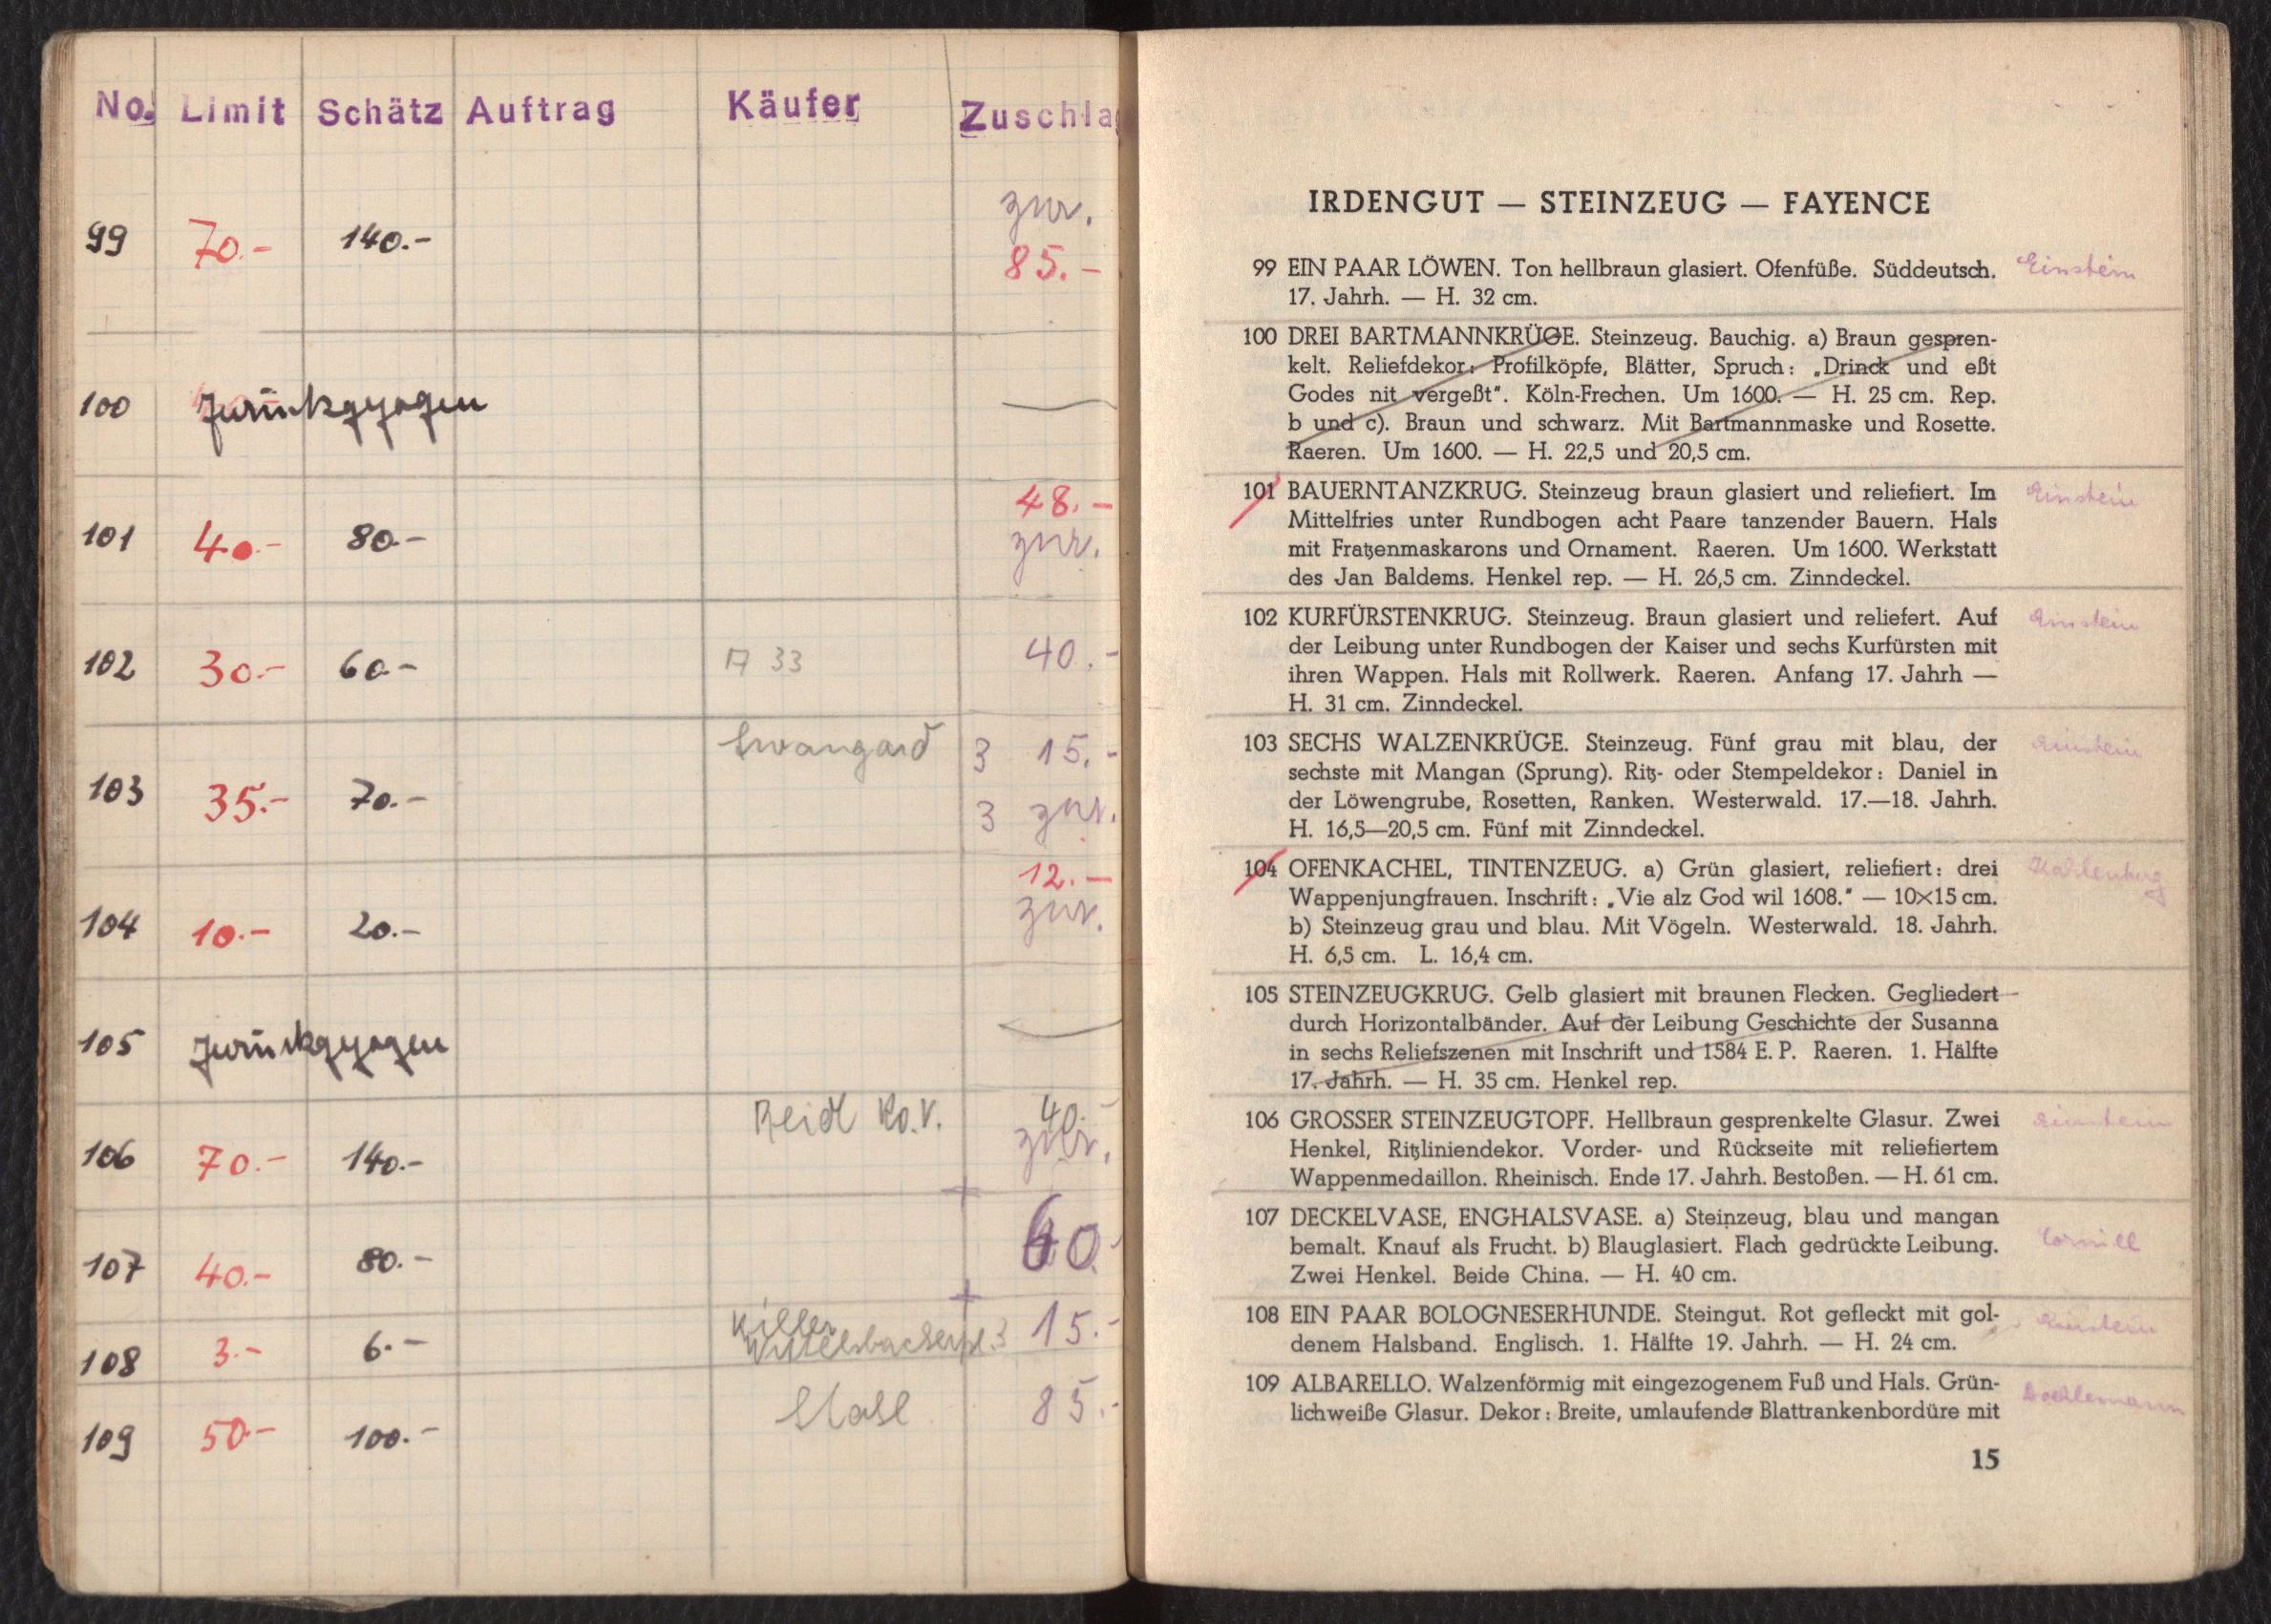 No. Limit Schätz Auftrag Käufer Zuschla
99 70.- 140.- zur.
85.-
100 Zurückgezogen
101 40.- 80.- 48.-
zur.
102 30.- 60.- A 33 40.-
103 35.- 70.- Swangard 3 15.-
3 zur.
104 10.- 20.- 12.-
zur.
105 Zurückgezogen
106 70.- 140.- Reidl Ko.V. 40.-
zur.
107 40.- 80.- 60.-
108 3.- 6.- Killer
Wittelsbacherpl. 3 15.-
109 50.- 100.- Stahl 85.-
IRDENGUT — STEINZEUG — FAYENCE
99 EIN PAAR LÖWEN. Ton hellbraun glasiert. Ofenfüße. Süddeutsch. Einstein
17. Jahrh. — H. 32 cm.
100 DREI BARTMANNKRÜGE. Steinzeug. Bauchig. a) Braun gespren-
kelt. Reliefdekor: Profilköpfe, Blätter, Spruch: „Drinck und eßt
Godes nit vergeßt“. Köln-Frechen. Um 1600. — H. 25 cm. Rep.
b und c). Braun und schwarz. Mit Bartmannmaske und Rosette.
Raeren. Um 1600. — H. 22,5 und 20,5 cm.
101 BAUERNTANZKRUG. Steinzeug braun glasiert und reliefiert. Im Einstein
Mittelfries unter Rundbogen acht Paare tanzender Bauern. Hals
mit Fratzenmaskarons und Ornament. Raeren. Um 1600. Werkstatt
des Jan Baldems. Henkel rep. — H. 26,5 cm. Zinndeckel.
102 KURFÜRSTENKRUG. Steinzeug. Braun glasiert und reliefert. Auf Einstein
der Leibung unter Rundbogen der Kaiser und sechs Kurfürsten mit
ihren Wappen. Hals mit Rollwerk. Raeren. Anfang 17. Jahrh —
H. 31 cm. Zinndeckel.
103 SECHS WALZENKRÜGE. Steinzeug. Fünf grau mit blau, der Einstein
sechste mit Mangan (Sprung). Ritz- oder Stempeldekor: Daniel in
der Löwengrube, Rosetten, Ranken. Westerwald. 17.—18. Jahrh.
H. 16,5—20,5 cm. Fünf mit Zinndeckel.
104 OFENKACHEL, TINTENZEUG. a) Grün glasiert, reliefiert: drei
Wappenjungfrauen. Inschrift: „Vie alz God wil 1608.“ — 10×15 cm.
b) Steinzeug grau und blau. Mit Vögeln. Westerwald. 18. Jahrh.
H. 6,5 cm. L. 16,4 cm.
105 STEINZEUGKRUG. Gelb glasiert mit braunen Flecken. Gegliedert
durch Horizontalbänder. Auf der Leibung Geschichte der Susanna
in sechs Reliefszenen mit Inschrift und 1584 E. P. Raeren. 1. Hälfte
17. Jahrh. — H. 35 cm. Henkel rep.
106 GROSSER STEINZEUGTOPF. Hellbraun gesprenkelte Glasur. Zwei Einstein
Henkel, Ritzliniendekor. Vorder- und Rückseite mit reliefiertem
Wappenmedaillon. Rheinisch. Ende 17. Jahrh. Bestoßen. — H. 61 cm.
107 DECKELVASE, ENGHALSVASE. a) Steinzeug, blau und mangan
bemalt. Knauf als Frucht. b) Blauglasiert. Flach gedrückte Leibung. Cornill
Zwei Henkel. Beide China. — H. 40 cm.
108 EIN PAAR BOLOGNESERHUNDE. Steingut. Rot gefleckt mit gol- Einstein
denem Halsband. Englisch. 1. Hälfte 19. Jahrh. — H. 24 cm.
109 ALBARELLO. Walzenförmig mit eingezogenem Fuß und Hals. Grün-
lichweiße Glasur. Dekor: Breite, umlaufende Blattrankenbordüre mit
15